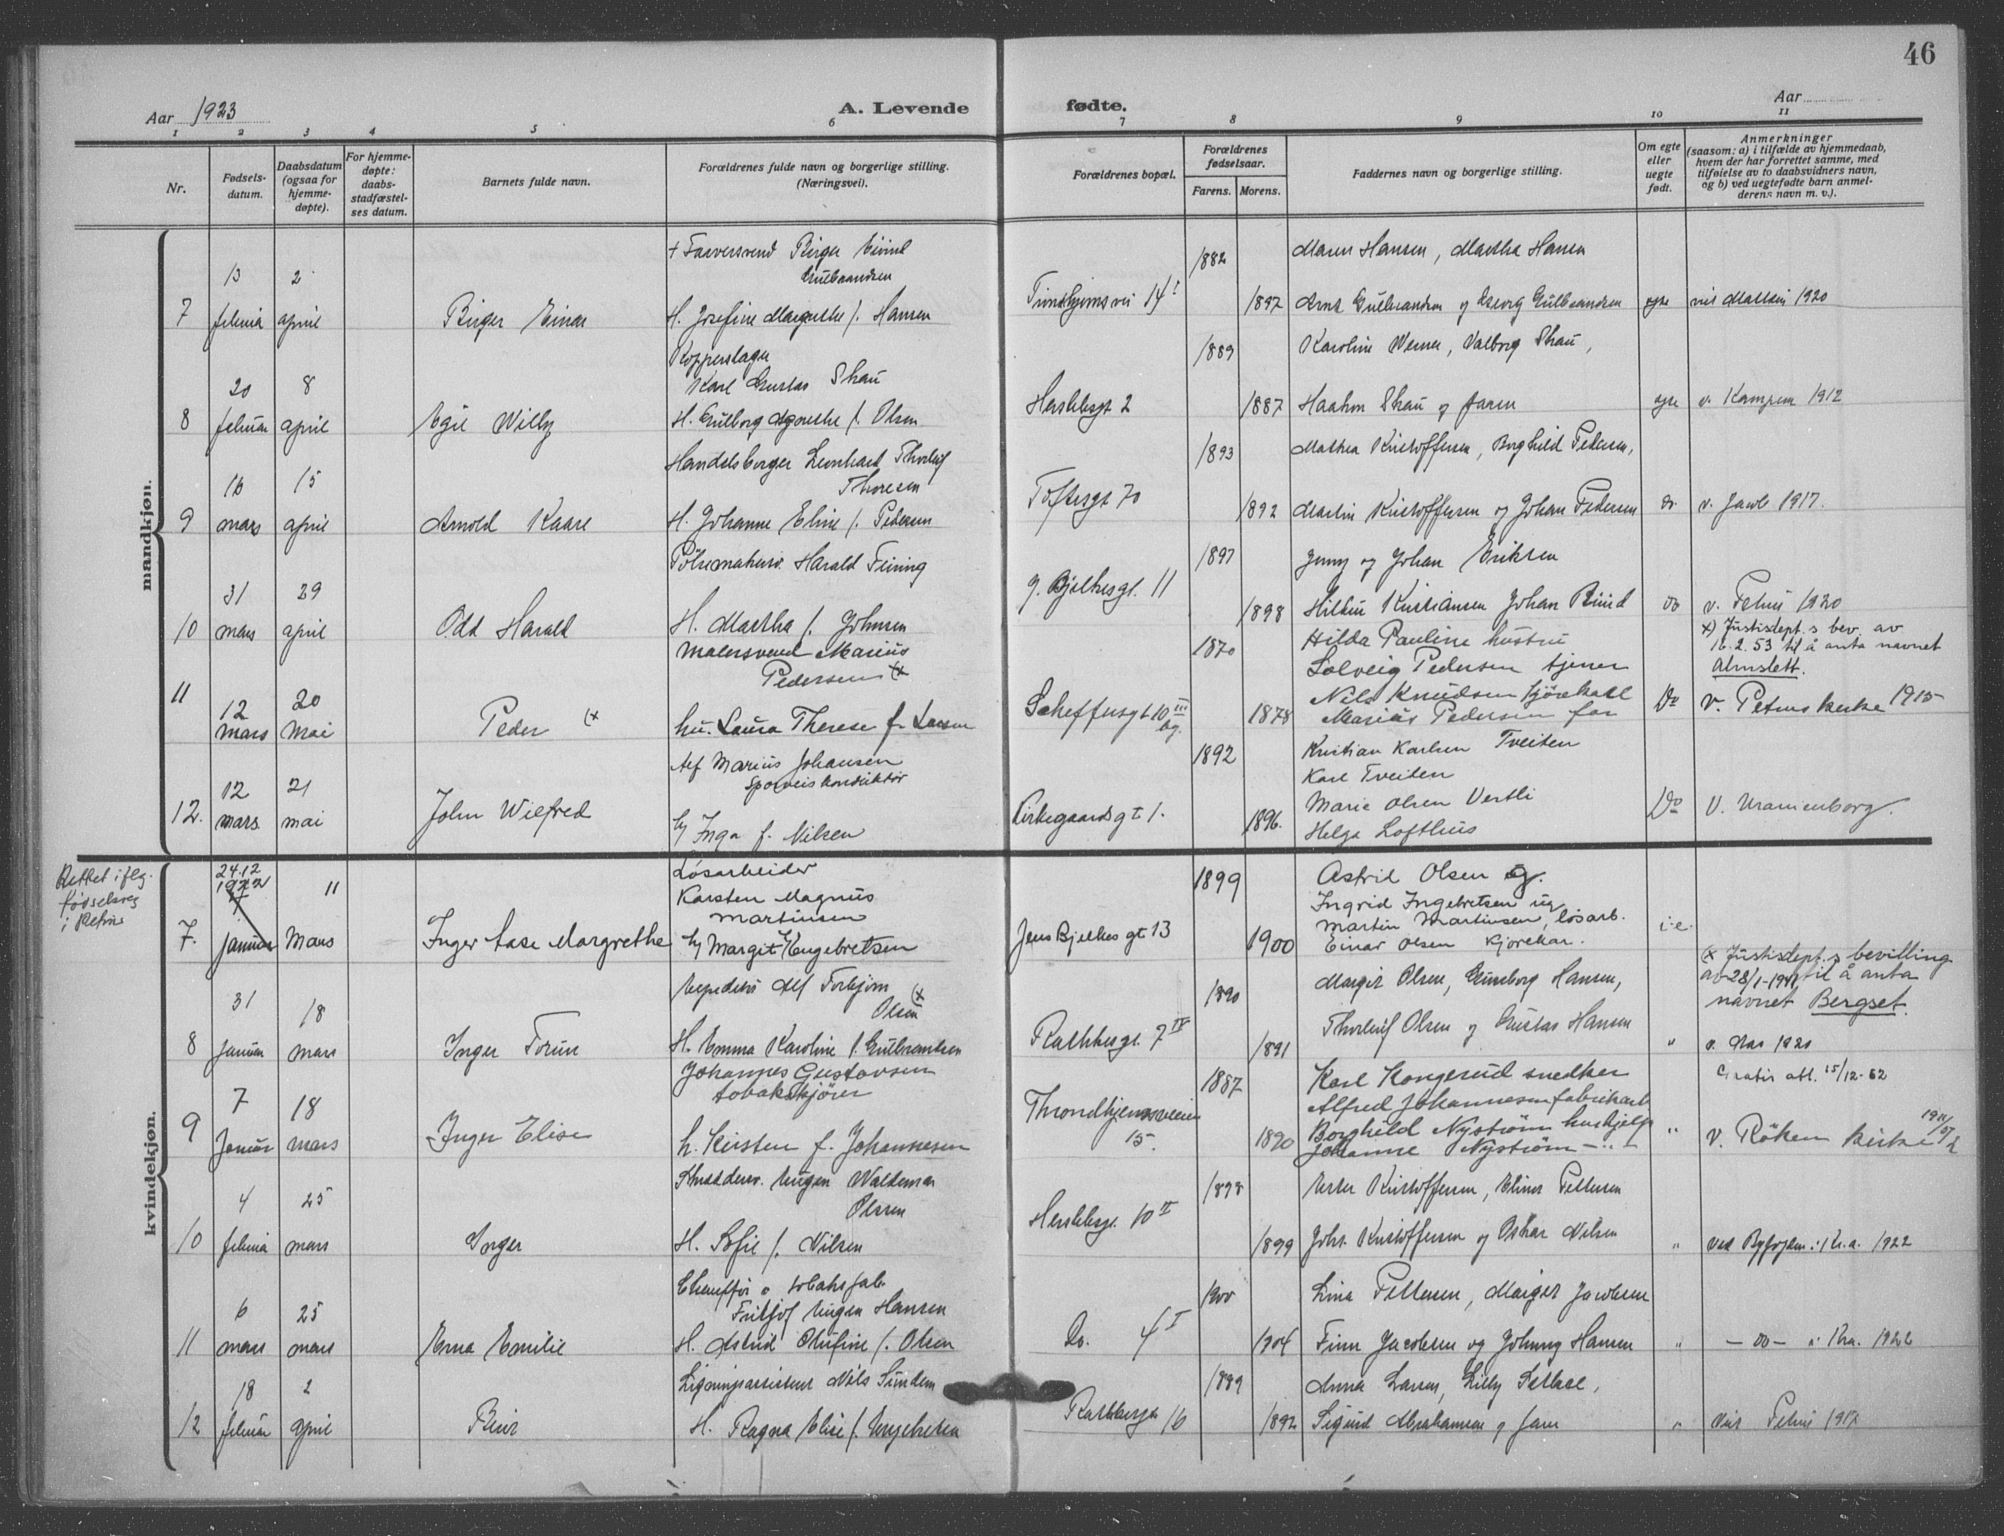 46
Aar 1923
A. Levende fødte.
Aar
1 2 3 4 5 6 7 8 9 10 11
Nr.
Fødsels-
datum.
Daabsdatum
(ogsaa for
hjemme-
døpte).
For hjemme-
døpte:
daabs-
stadfæstel-
ses datum.
Barnets fulde navn.
Forældrenes fulde navn og borgerlige stilling.
(Næringsvei).
Forældrenes bopæl.
Forældrenes
fødselsaar.
Farens. Morens.
Faddernes navn og borgerlige stilling.
Om egte
eller
uegte
født.
Anmerkninger
(saasom: a) i tilfælde av hjemmedaab,
hvem der har forrettet samme, med
tilføielse av to daabsvidners navn,
og b) ved uegtefødte barn anmel-
derens navn m. v.).
mandkjøn.
+ Farversvend Birger Eivind
Gulbrandsen
13 2
7 april Birger Einar H. Josefine Margrethe f. Hansen
1882 Maren Hansen, Martha Hansen
14 I
1897 Arnt Gulbrandsen og Gulbrandsen 1920
Kopperslager
Karl Gustav Skau
20 8
8 februar april Egil Willy H. Gulborg Agnethe f. Olsen
1889 Karoline Werner, Valborg Skau,
Herslebsgt 2 1887 Haakon Skau og faren egte v. Kampen 1912
Handelsborger Leonhard Thorleif
Thoresen
16 15
9 mars april Arnold Kaare H. Johanne Eline f. Pedersen
1893 Mathea Kristoffersen, Borghild Pedersen,
Toftesgt 70 1892 Martin Kristoffersen og Johan Pedersen do. v. Jacob 1917.
Pølsemakersv. Harald Feiring
31 29
10 mars april Odd Harald H. Martha f. Johnsen
1897 Jenny og Johan Eriksen
J. Bjelkesgt. 11 1898 Kristiansen Johan do v. Petrus 1920
Malersvend Marius
Pedersen (x
11 12 20
mars Mai Peder (x hu. Laura Therese f. Larsen
1870 Hilda Pauline hustru
Solveig Pedersen tjener
Scheffersgt 10 III
bg. 1878 Nils Knudsen kjørekarl
Marius Pedersen far Do v. Petrus kirke 1915
x) Justisdept.s bev. av
16.2.53 til å anta navnet
Almslett.
Alf Marius Johansen
Sporveiskonduktør
12 21
12. mars mai John Wilfred H Inga f. Nilsen
1892 Kristian Karlsen Tveiten
Karl Tveiten
Kirkegaardsgt 1. 1896. Marie Olsen Vestli
Helga Lofthus Do v. Uranienborg.
kvindekjøn.
Rettet i flg.
fødselsreg
i Petrus
24.12
1922
Løsarbeider
Karsten Magnus
Martinsen
7. Januar 11 Mars Inger Aase Margrethe H Margit Engebretsen
1899 Astrid Olsen og.
Ingrid Ingebretsen ug
Jens Bjelkes gt 13 1900 Martin Martinsen, løsarb.
Einar Olsen kjørekar. i.e.
Alf Torbjørn (x
Olsen
31 18
8 Januar mars Inger Torun H. Emma Karoline f. Gulbrandsen
1890 Margit Olsen, Gunborg Hansen,
Rathkesgt. 7 IV 1891 Thorleif Olsen og Gustav Hansen " v. Nas 1920
(x Justisdept.s bevilling
av 28/1-1941 til å anta
navnet Bergset.
Johannes Gustavsen
tobakskjører
7 18
9 Januar mars Inger Elise h. Kirsten f. Johannesen
1887 Karl Kongerud snedker
Alfred Johannesen fabrikarb
Throndhjemsveien
15. 1890 Borghild Nystrøm hushjelp
Johanne Nystrøm — " — " v. Røken kirke
Gratis att. 15/12-62
Skræddersv. Eugen Waldemar
Olssen
4 25
10 februar mars Inger H. Sofie f. Nilsen
1898 Ester Kristoffersen, Elinor Pettersen
Herslebsgt. 10 II 1899 Johs. Kristoffersen og Oskar Nilsen " ved Byfogden i Kr.a. 1922
Chauffør
Fritjof Eugen Hansen
6 25
11 mars mars Erna Emilie H. Astrid Olufine f. Olsen
1900 Lina Pettersen, Margit Jacobsen
Do. 4 I 1904 Finn Jacobsen og Johnny Hansen " — do — i Kra. 1922
Ligningsassistent Nils Sundem
18 2
12 februar april H. Ragna Elise f. Engebretsen
1889 Anna Larsen, Lilly
Rathkesgt 16 1892 Sigurd Abrahamsen og faren " Petrus 1917